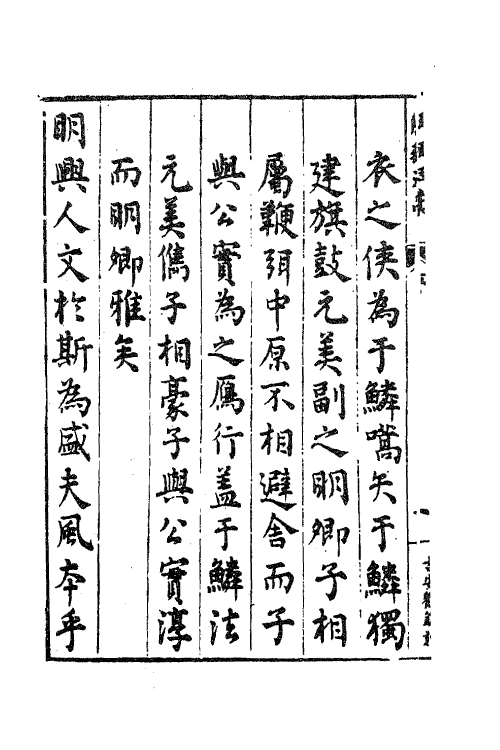 衣之俠為于鱗嚆矢于鱗獨
建旗鼓元美副之明卿子相
屬鞭弭中原不相避舍而子
與公實為之鴈行盖于鱗法
元美儁子相豪子與公實淳
而明卿雅矣
明興人文於斯為盛夫風本乎